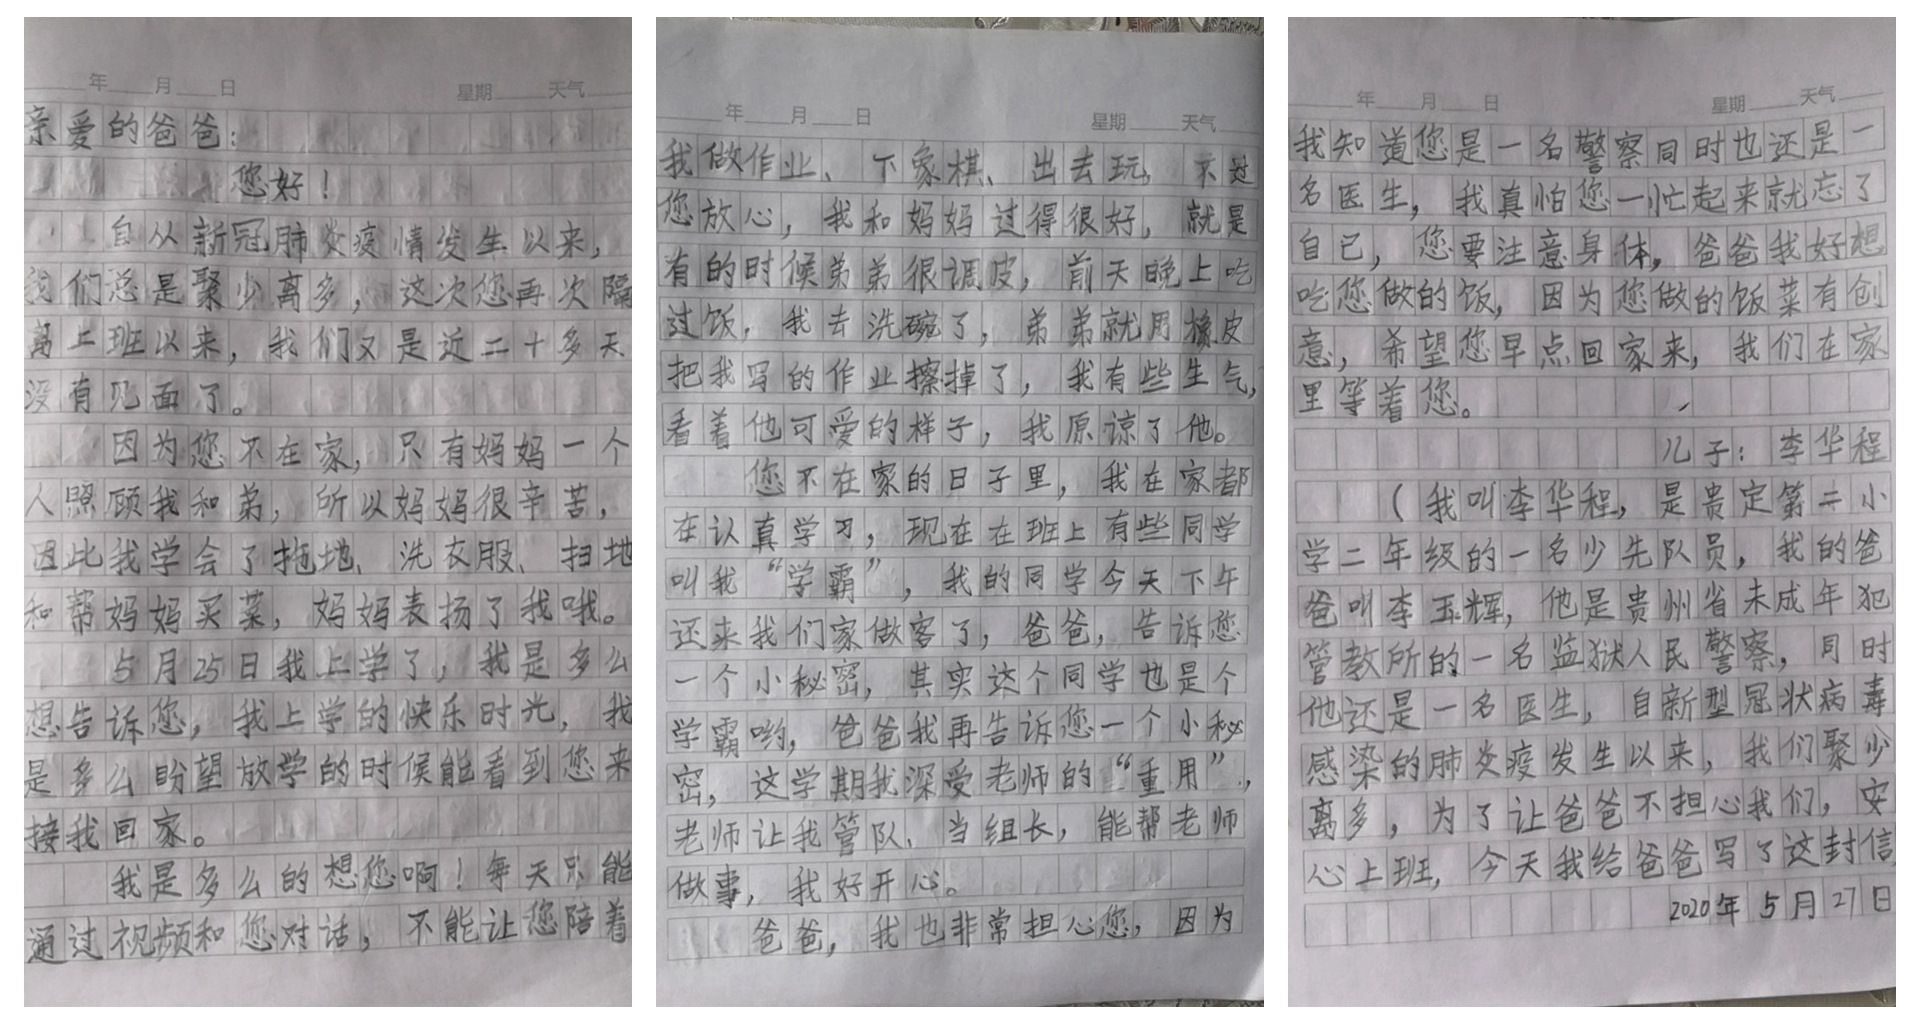 年 月 日 星期 天气
亲爱的爸爸：
您好！
自从新冠肺炎疫情发生以来，
我们总是聚少离多，这次您再次隔
离上班以来，我们又是近二十多天
没有见面了。
因为您不在家，只有妈妈一个
人照顾我和弟，所以妈妈很辛苦，
因此我学会了拖地、洗衣服、扫地
和帮妈妈买菜，妈妈表扬了我哦。
5月25日我上学了，我是多么
想告诉您，我上学的快乐时光，我
是多么盼望放学的时候能看到您来
接我回家。
我是多么的想您啊！每天只能
通过视频和您对话，不能让您陪着
年 月 日 星期 天气
我做作业、下象棋、出去玩，不过
您放心，我和妈妈过得很好，就是
有的时候弟弟很调皮，前天晚上吃
过饭，我去洗碗了，弟弟就用橡皮
把我写的作业擦掉了，我有些生气，
看着他可爱的样子，我原谅了他。
您不在家的日子里，我在家都
在认真学习，现在在班上有些同学
叫我“学霸”，我的同学今天下午
还来我们家做客了，爸爸，告诉您
一个小秘密，其实这个同学也是个
学霸哟，爸爸我再告诉您一个小秘
密，这学期我深受老师的“重用”，
老师让我管队、当组长，能帮老师
做事，我好开心。
爸爸，我也非常担心您，因为
年 月 日 星期 天气
我知道您是一名警察同时也还是一
名医生，我真怕您一忙起来就忘了
自己，您要注意身体，爸爸我好想
吃您做的饭，因为您做的饭菜有创
意，希望您早点回家来，我们在家
里等着您。
儿子：李华程
（我叫李华程，是贵定第二小
学二年级的一名少先队员，我的爸
爸叫李玉辉，他是贵州省未成年犯
管教所的一名监狱人民警察，同时
他还是一名医生，自新型冠状病毒
感染的肺炎疫发生以来，我们聚少
离多，为了让爸爸不担心我们，安
心上班，今天我给爸爸写了这封信
2020年5月27日